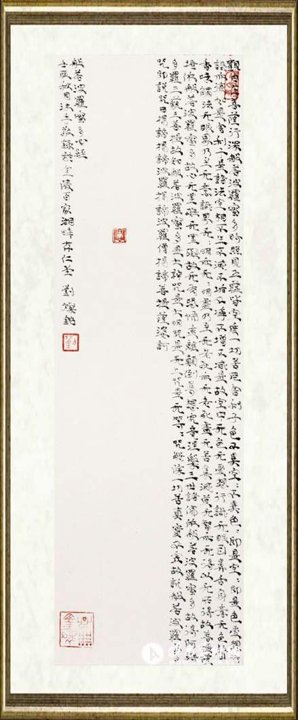 觀自在菩薩行深般若波羅蜜多時照見五蘊皆空度一切苦厄舍利子色不異空空不異色色即是空空即是色受想行
識亦復如是舍利子是諸法空相不生不滅不垢不淨不增不減是故空中無色無受想行識無眼耳鼻舌身意無色聲
香味觸法無眼界乃至無意識界無無明亦無無明盡乃至無老死亦無老死盡無苦集滅道無智亦無得以無所得故菩提薩
埵依般若波羅蜜多故心無罣礙無罣礙故無有恐怖遠離顛倒夢想究竟涅槃三世諸佛依般若波羅蜜多故得阿耨
多羅三藐三菩提故知般若波羅蜜多是大神咒是大明咒是無上咒是無等等咒能除一切苦真實不虛故說般若波羅蜜多
咒即說咒曰揭諦揭諦波羅揭諦波羅僧揭諦菩提薩婆訶
般若波羅蜜多心經
壬辰 劉燦銘